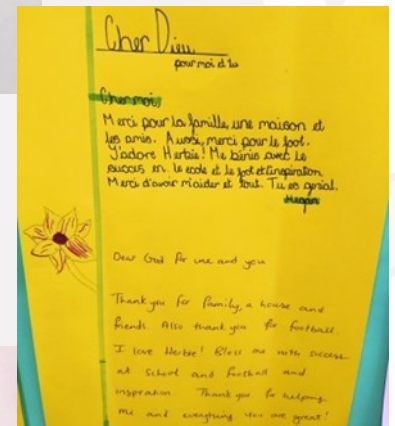 Cher Dieu
pour moi et tu
Cher moi
Merci pour la famille, une maison et
les amis. Aussi, merci pour le foot.
J'adore Me bénis avec le
succes en le ecole et le foot et l'inspiration
Merci d'avoir m'aider et tout. Tu es genial.
Dear God for me and you
Thank you for family, a house and
friends. Also thank you for football.
I love Bless me with success
at school and football and
inspration. Thank you for helping
me and everything You are great!